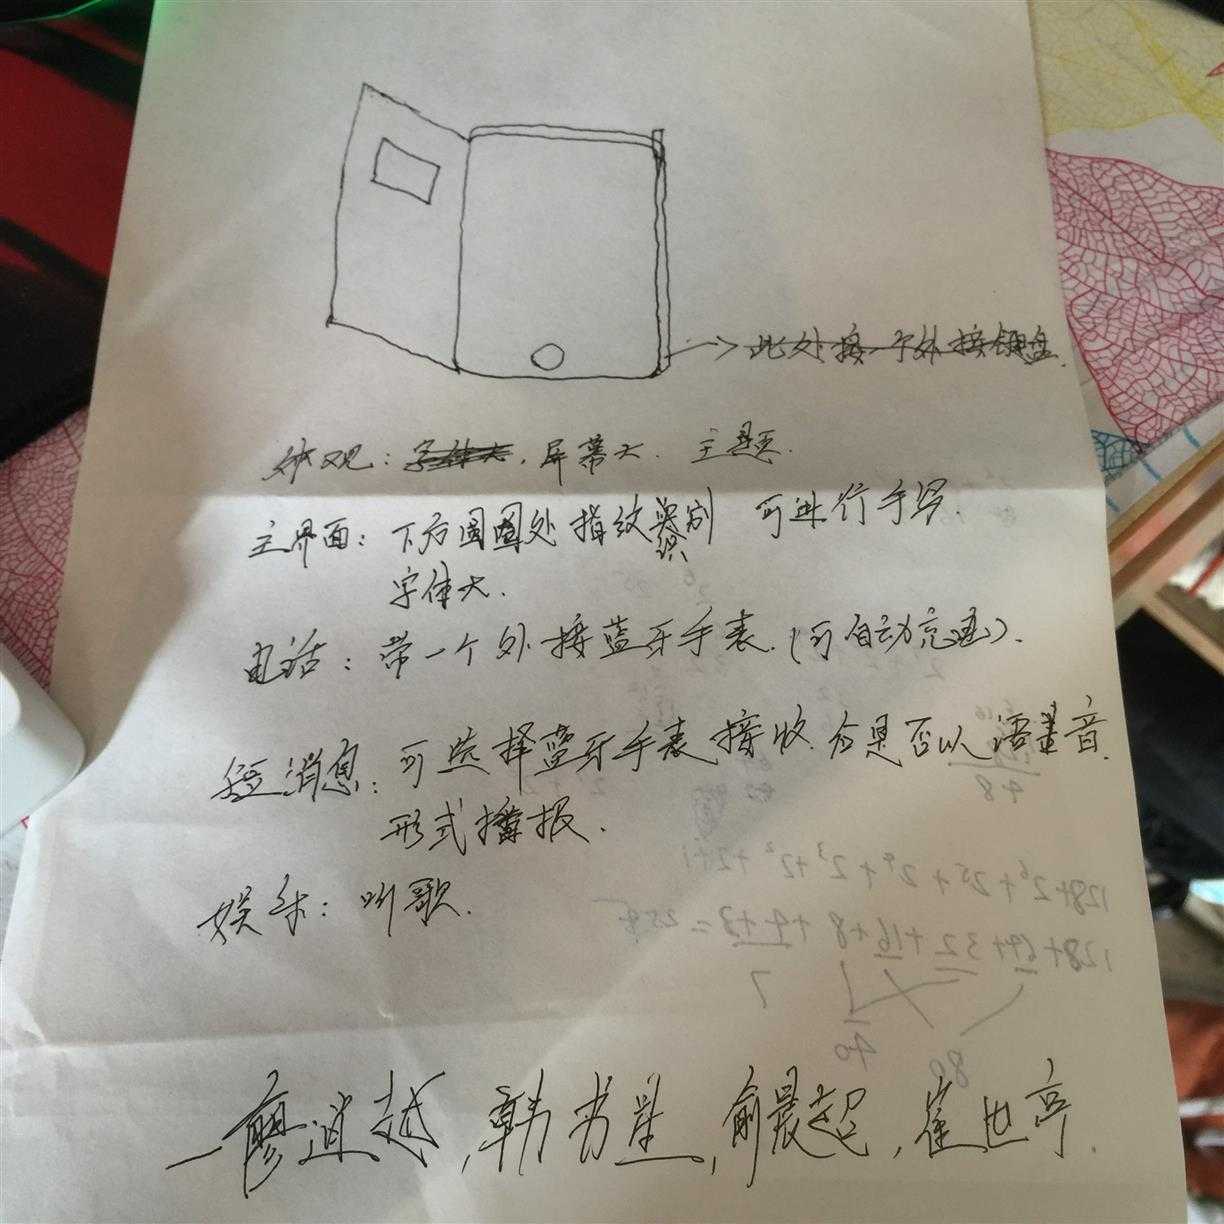 此处接一个外接键盘.
外观: 字体大, 屏幕大. 主题.
主界面: 下方圆圈处指纹识别 可进行手写.
字体大.
电话: 带一个外接蓝牙手表.(可自动充电).
短消息: 可选择蓝牙手表接收.
是否以语音
形式播报.
娱乐: 听歌.
128+2⁶+2⁵+2⁴+2³+2²+2+1
128+64+32+16+8+4+3=255
7
40
80
48
韩书
俞晨起, 崔世亭.